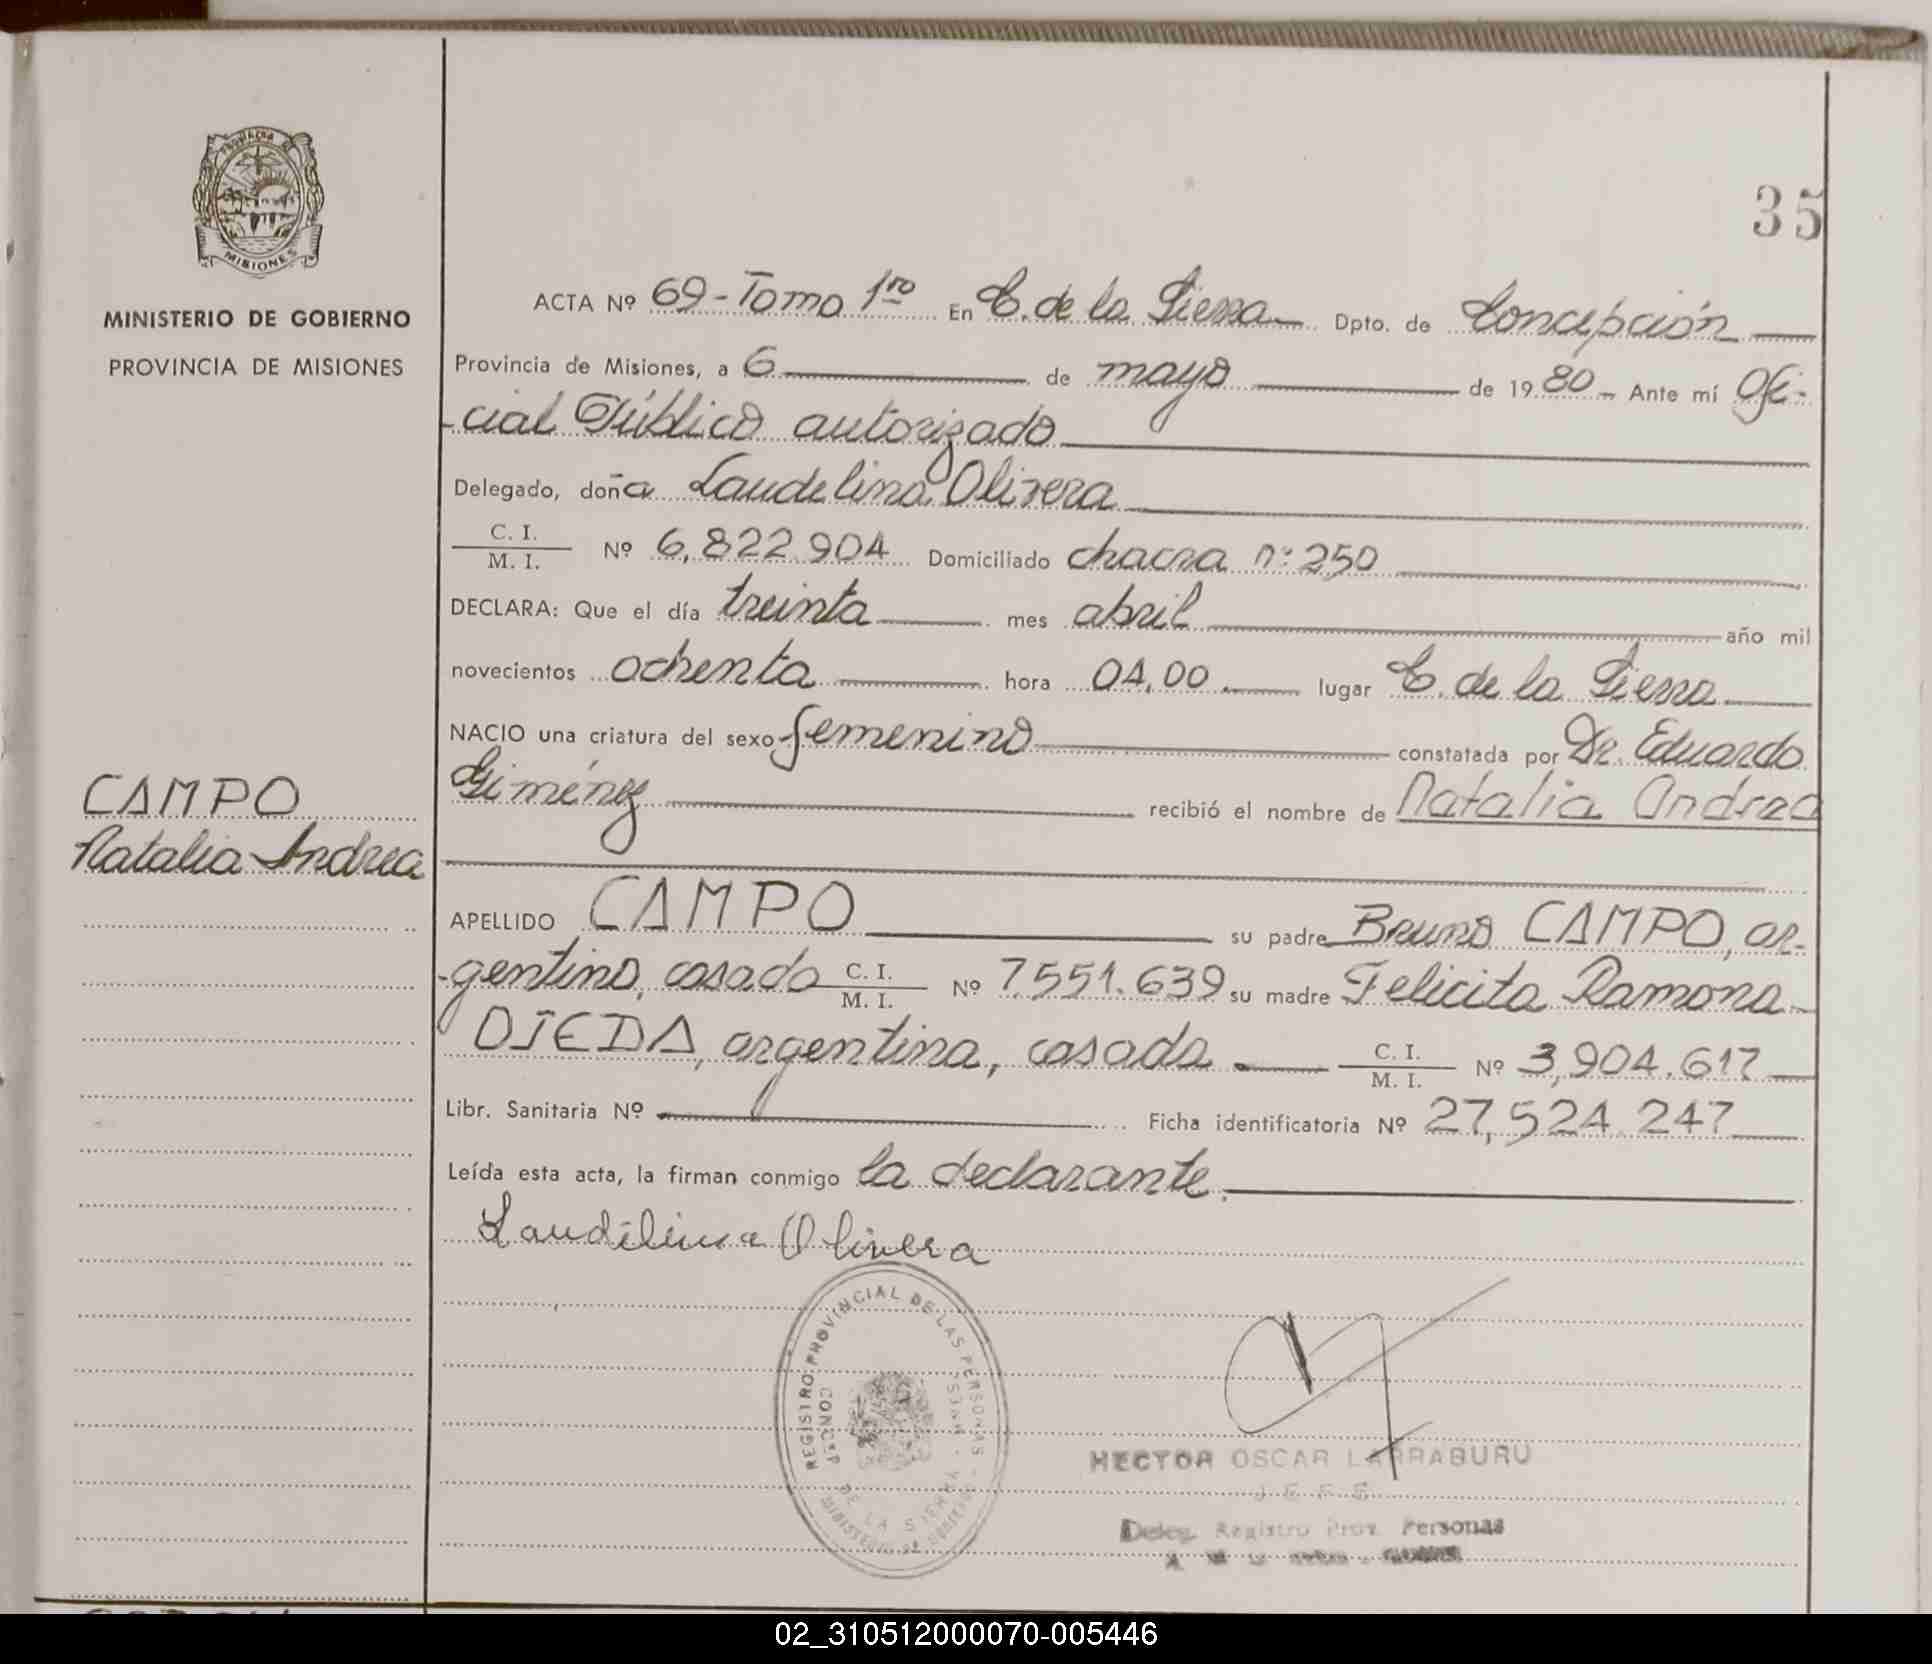 PROVINCIA DE
MISIONES
MINISTERIO DE GOBIERNO
PROVINCIA DE MISIONES
CAMPO
Natalia Andrea
35
ACTA Nº 69-Tomo 1ro En C. de la Sierra Dpto. de Concepción
Provincia de Misiones, a 6 de mayo de 1980 Ante mí Ofi-
-cial Público autorizado
Delegado, doña Laudelina Olivera
C. I.
M. I. Nº 6,822.904 Domiciliado chacra nº 250
DECLARA: Que el día treinta mes abril año mil
novecientos ochenta hora 04,00 lugar C. de la Sierra
NACIO una criatura del sexo femenino constatada por Dr. Eduardo
Giménez recibió el nombre de Natalia Andrea
APELLIDO CAMPO su padre Bruno CAMPO, ar-
-gentino, casado C. I. M. I. Nº 7.551.639 su madre Felicita Ramona
OJEDA, argentina, casada C. I. M. I. Nº 3,904.617
Libr. Sanitaria Nº Ficha identificatoria Nº 27,524.247
Leída esta acta, la firman conmigo la declarante.
Laudilina Olivera
REGISTRO PROVINCIAL DE LAS PERSONAS
DE LA SIERRA
HECTOR OSCAR LARRABURU
JEFE
Deleg. Registro Prov. Personas
02_310512000070-005446